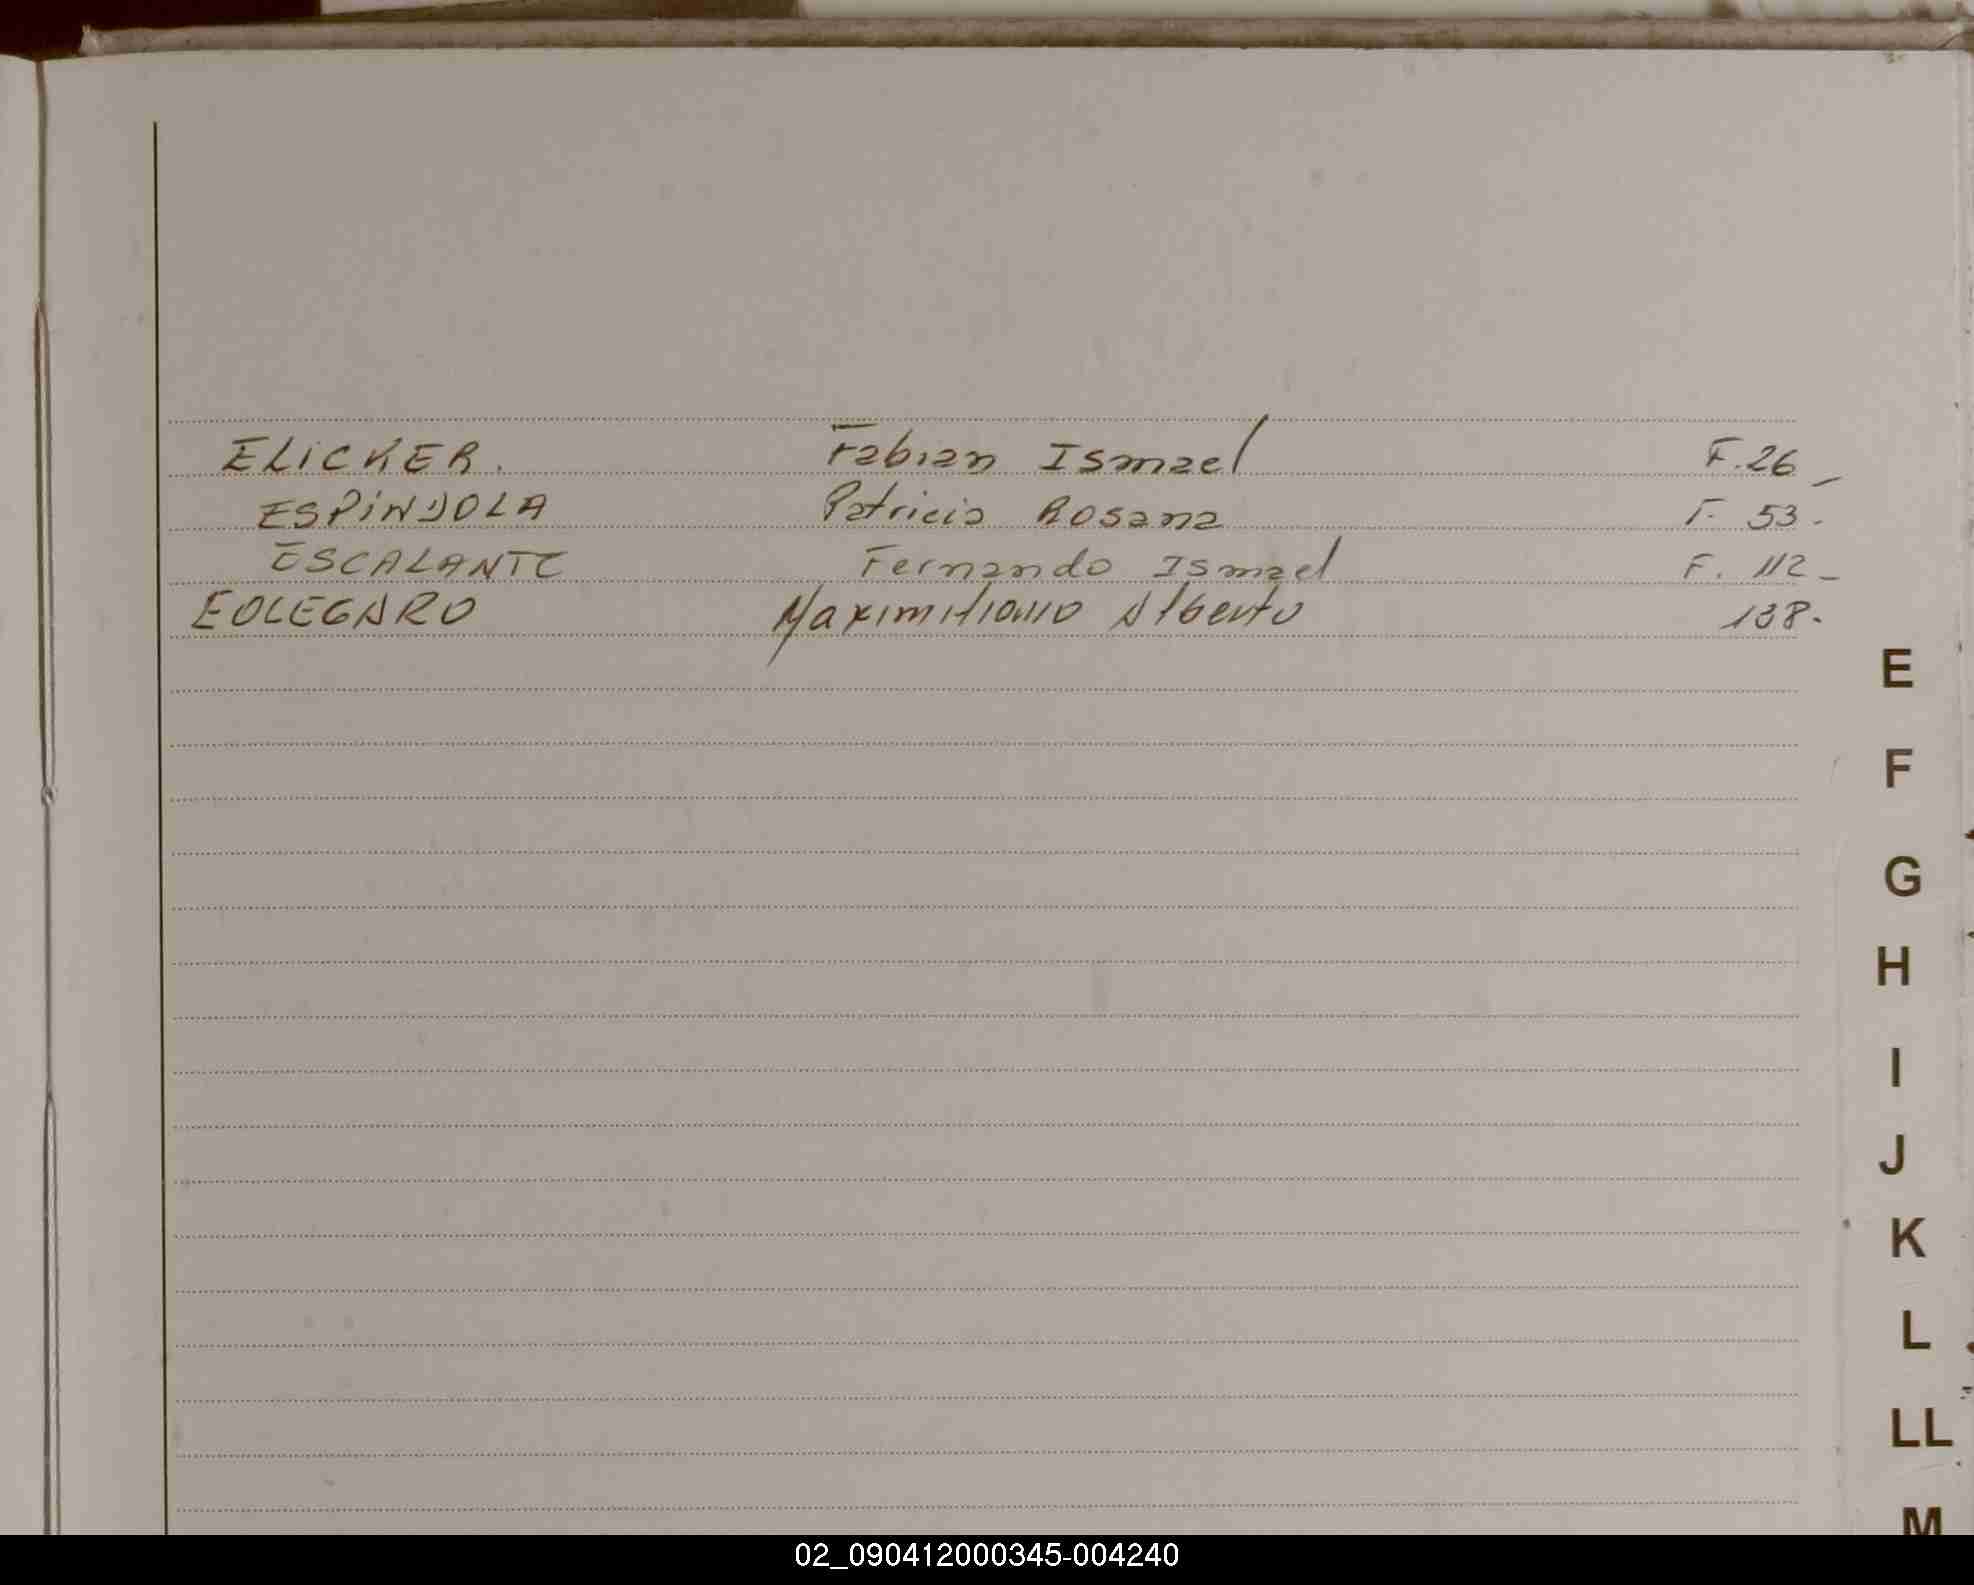 ELICKER. Fabian Ismael F. 26
ESPINDOLA Patricia Rosana F. 53.
ESCALANTE Fernando Ismael F. 112
EOLEGARO Maximiliano Alberto 138.
E
F
G
H
I
J
K
L
LL
M
02_090412000345-004240